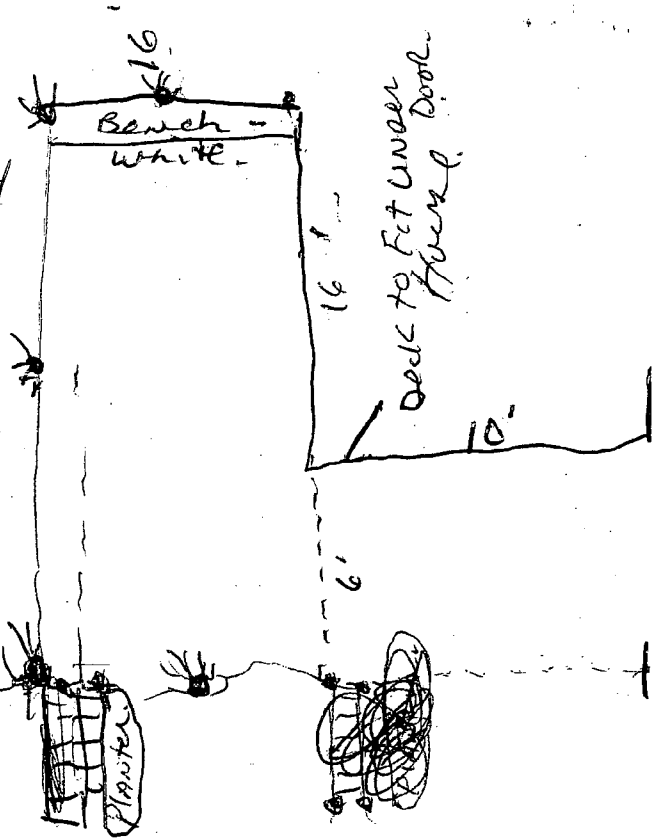 16
Bench -
White.
16'
Deck to Fit Under
Door.
10'
6'
Planter.